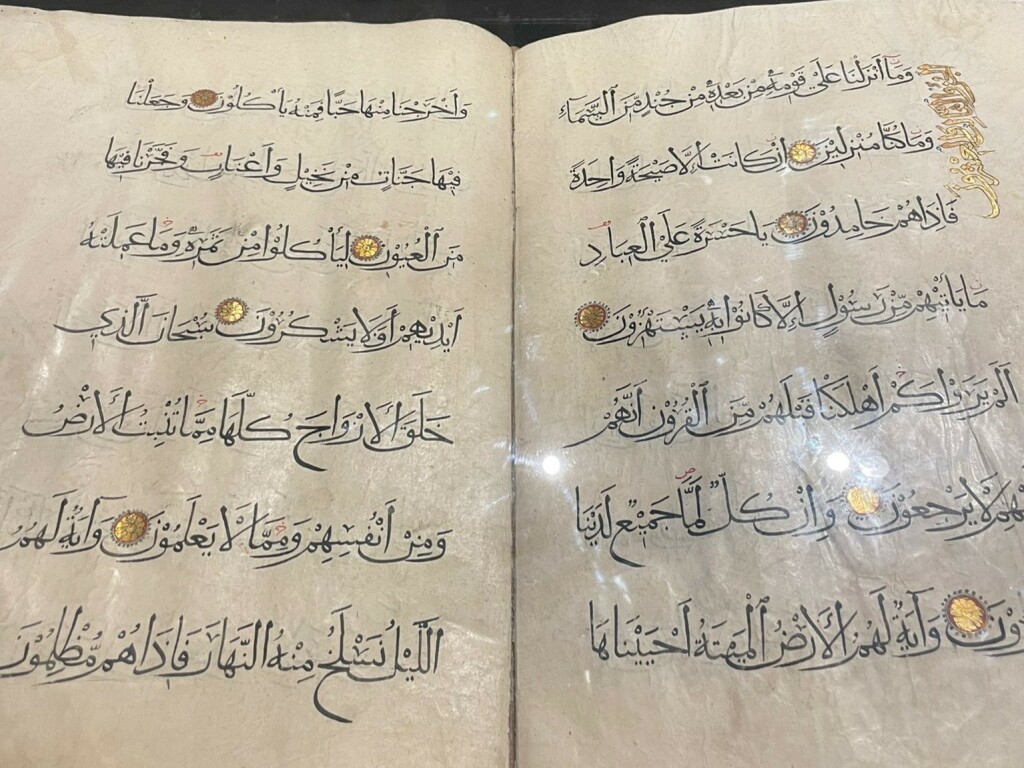 وَمَا أَنْزَلْنَا عَلَىٰ قَوْمِهِ مِنْ بَعْدِهِ مِنْ جُنْدٍ مِنَ السَّمَاءِ
وَمَا كُنَّا مُنْزِلِينَ إِنْ كَانَتْ إِلَّا صَيْحَةً وَاحِدَةً
فَإِذَا هُمْ خَامِدُونَ يَا حَسْرَةً عَلَى الْعِبَادِ
مَا يَأْتِيهِمْ مِنْ رَسُولٍ إِلَّا كَانُوا بِهِ يَسْتَهْزِؤُنَ
أَلَمْ يَرَوْا كَمْ أَهْلَكْنَا قَبْلَهُمْ مِنَ الْقُرُونِ أَنَّهُمْ
لَا يَرْجِعُونَ وَإِنْ كُلٌّ لَمَّا جَمِيعٌ لَدَيْنَا
وَآيَةٌ لَهُمُ الْأَرْضُ الْمَيْتَةُ أَحْيَيْنَاهَا
وَأَخْرَجْنَا مِنْهَا حَبًّا فَمِنْهُ يَأْكُلُونَ وَجَعَلْنَا
فِيهَا جَنَّاتٍ مِنْ نَخِيلٍ وَأَعْنَابٍ وَفَجَّرْنَا فِيهَا
مِنَ الْعُيُونِ لِيَأْكُلُوا مِنْ ثَمَرِهِ وَمَا عَمِلَتْهُ
أَيْدِيهِمْ أَفَلَا يَشْكُرُونَ سُبْحَانَ الَّذِي
خَلَقَ الْأَزْوَاجَ كُلَّهَا مِمَّا تُنْبِتُ الْأَرْضُ
وَمِنْ أَنْفُسِهِمْ وَمِمَّا لَا يَعْلَمُونَ وَآيَةٌ لَهُمُ
اللَّيْلُ نَسْلَخُ مِنْهُ النَّهَارَ فَإِذَا هُمْ مُظْلِمُونَ